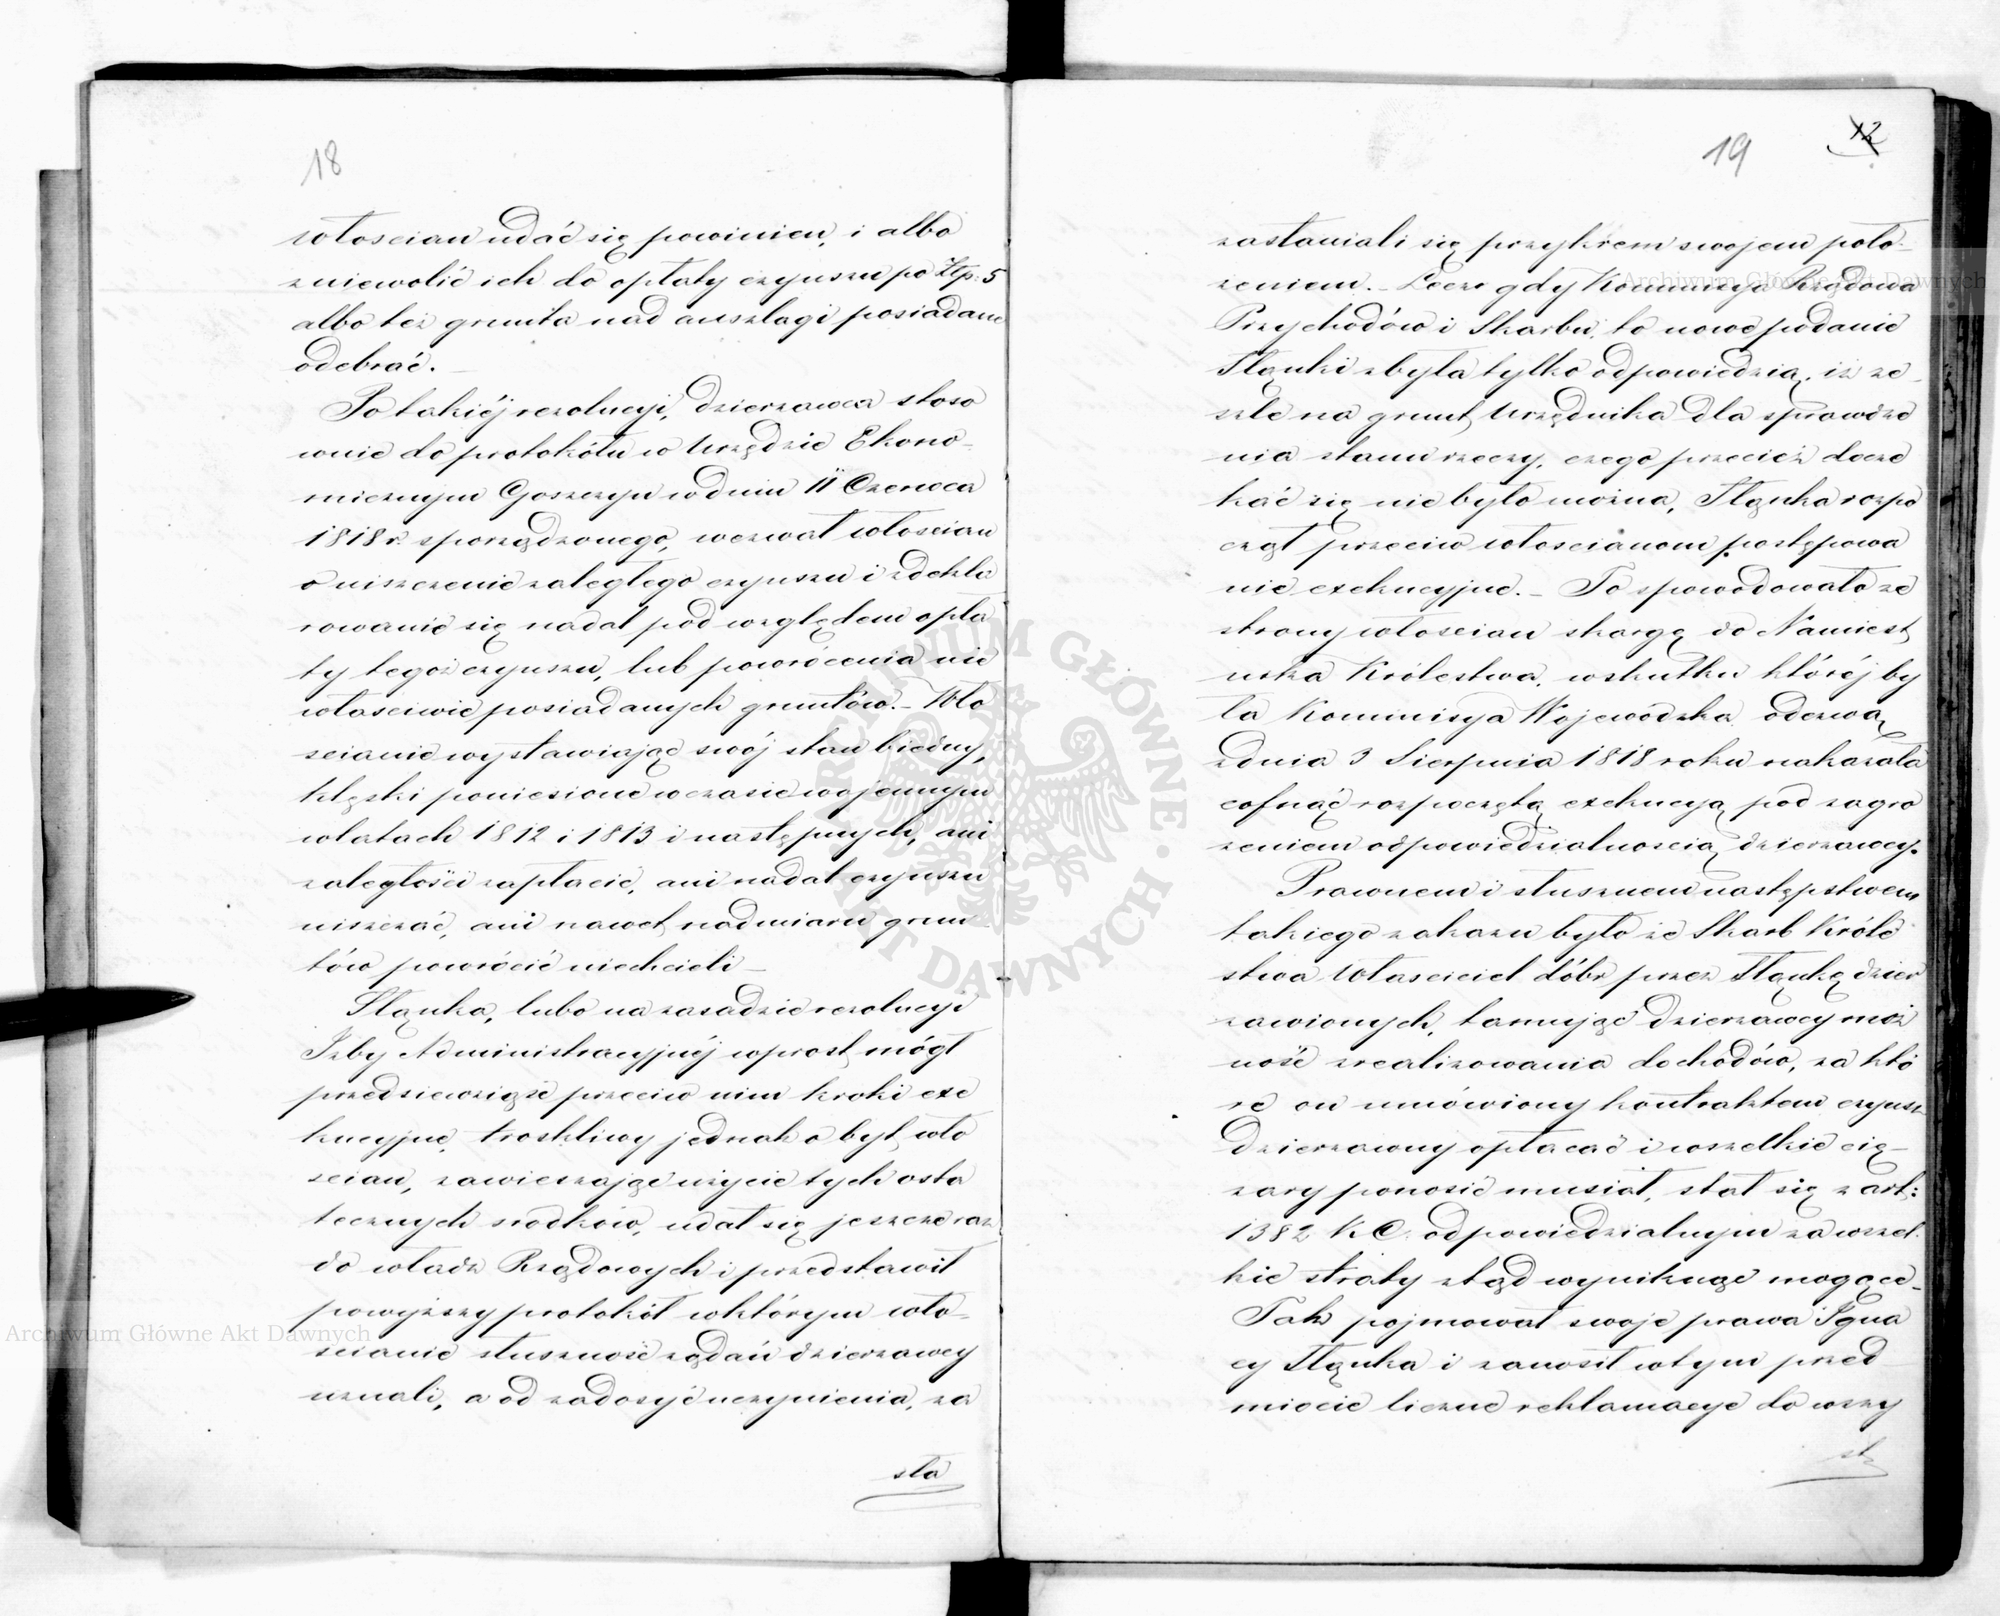 18
włoscian udać się powinien, i albo
zniewolić ich do opłaty czynszu po Złp: 5
albo też grunta nad anszlagi posiadane
odebrać. –
Po takiéj rezolucyi, dzierzawca stoso
wnie do protokółu w Urzędzie Ekono-
micznym Goszczyn w dniu 11 Czerwca
1818 r. sporządzonego, wezwał włoscian
o uiszczenie zaległego czynszu i zdekla
rowanie się nadal pod względem opła
ty tegoż czynszu, lub powrócenia nie
własciwie posiadanych gruntów. – Wło
scianie wystawiając swój stan biedny,
klęski poniesione w czasie wojennym
w latach 1812 i 1813 i następnych, ani
zaległości zapłacić, ani nadal czynszu
uiszczać, ani nawet nadmiaru grun
tów powrócić niechcieli –
Stąnka, lubo na zasadzie rezolucyi
Izby Administracyjnéj wprost mógł
przedsiewziąść przeciw nim kroki exe
kucyjne, troskliwy jednak o byt wło
scian, zawieszając użycie tych osta
tecznych srodków, udał się jeszcze raz
do władz Rządowych i przedstawił
powyższy protokół w którym wło-
scianie słuszność żądań dzierzawcy
uznali, a od zadosyć uczynienia, za
sła
19
12
zastaniali się przykrem swojem poło-
żeniem. – Lecz gdy Kommisya Rządowa
Przychodów i Skarbu, to nowe podanie
Stąnki zbyła tylko odpowiedzią, iż ze-
szle na grunt Urzędnika dla sprawdze
nia stanu rzeczy, czego przecież docze
kać się nie było można, Stąnka rozpo
czął przeciw włoscianom postępowa
nie exekucyjne. – To spowodowało ze
strony włoscian skargę do Namiest
nika Królestwa, w skutku któréj by
ła Kommisya Wojewódzka odezwą
z dnia 3 Sierpnia 1818 roku nakazała
cofnąć rozpoczętą exekucyą pod zagro
żeniem odpowiedzialnoscią dzierzawcy.
Prawnem i słusznem następstwem
takiego zakazu było że Skarb Króle
stwa Własciciel dóbr przez Stąnkę dzier
zawionych, tamując dzierzawcy moż
ność zrealizowania dochodów, za któ
re on umówiony kontraktem czynsz
dzierzawny opłacać i wszelkie cię-
zary ponosić musiał, stał się z art:
1382 K C. odpowiedzialnym za wszel-
kie straty ztąd wyniknąć mogące –
Tak pojmował swoje prawa Igna
cy Stąnka i zanosił w tym przed
miocie liczne reklamacye do wszy
st
Archiwum Główne Akt Dawnych
Archiwum Główne Akt Dawnych
ARCHIWUM GŁÓWNE AKT DAWNYCH